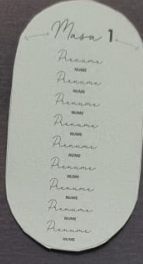 Masa 1
Prenume
NUME
Prenume
NUME
Prenume
NUME
Prenume
NUME
Prenume
NUME
Prenume
NUME
Prenume
NUME
Prenume
NUME
Prenume
NUME